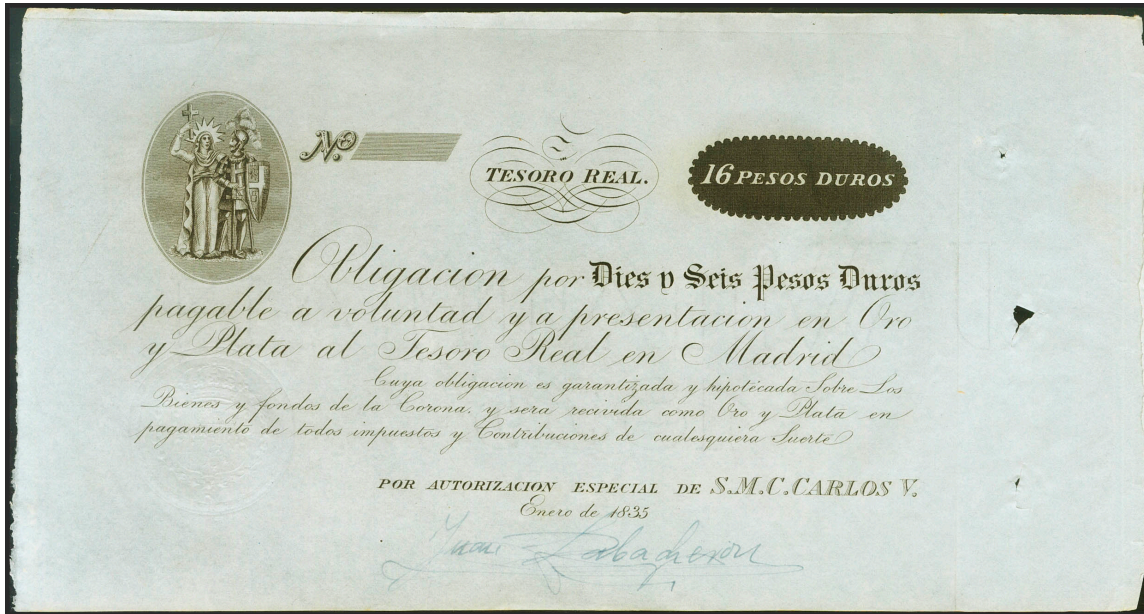 Nº
TESORO REAL.
16 PESOS DUROS
Obligacion por Dies y Seis Pesos Duros
pagable a voluntad y a presentacion en Oro
y Plata al Tesoro Real en Madrid
Cuya obligacion es garantizada y hipotécada Sobre Los
Bienes y fondos de la Corona, y sera recivida como Oro y Plata en
pagamiento de todos impuestos y Contribuciones de cualesquiera Suerte
POR AUTORIZACION ESPECIAL DE S.M.C. CARLOS V.
Enero de 1835
Juan